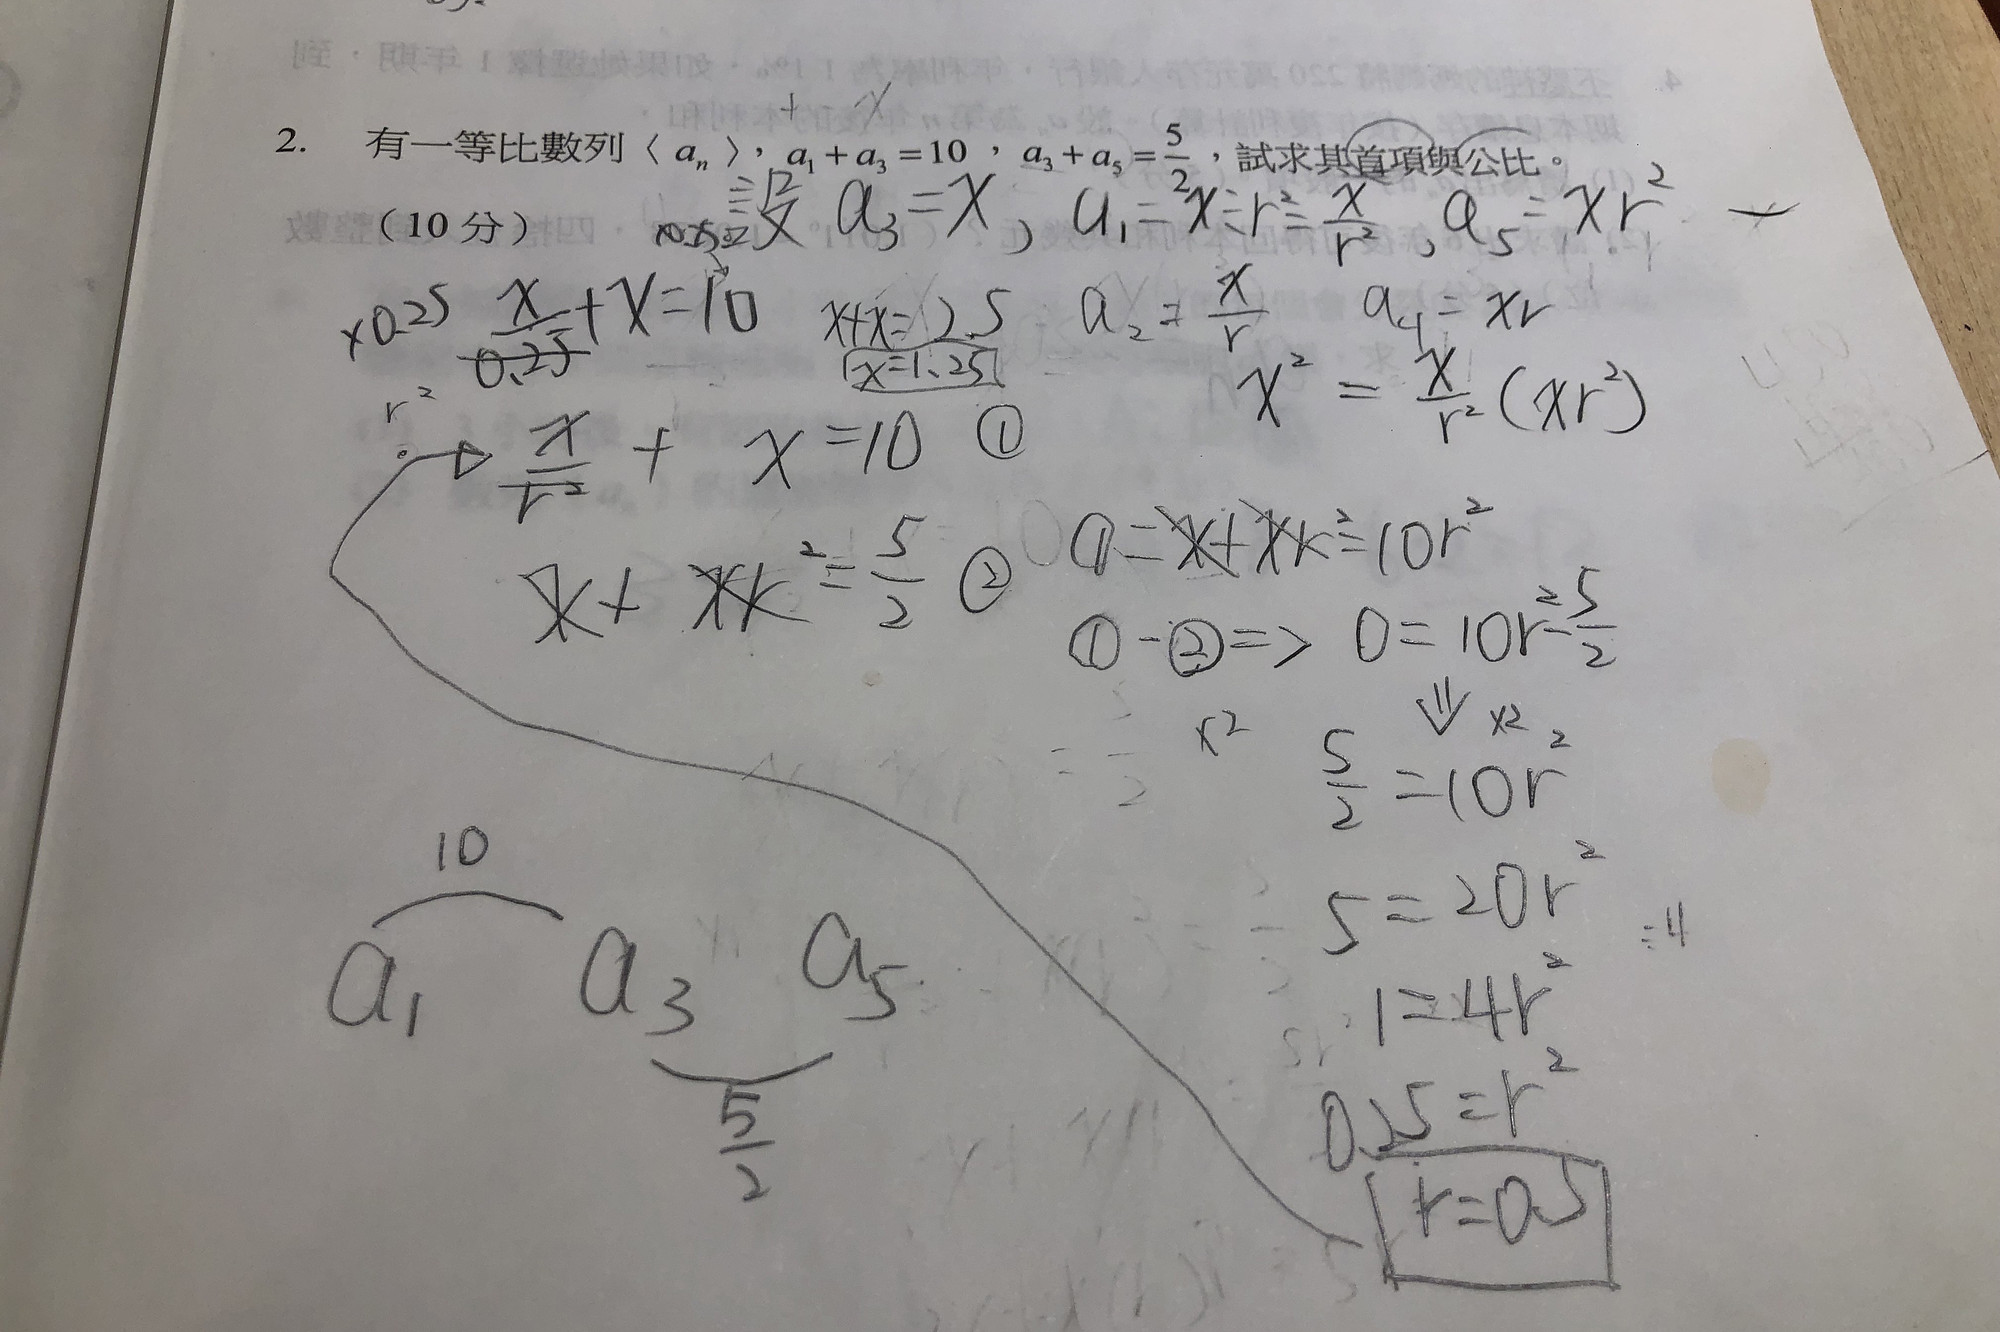 2. 有一等比數列〈 aₙ 〉，a₁ + a₃ = 10 ，a₃ + a₅ = 5/2 ，試求其首項與公比。
（10 分）
設 a₃ = x , a₁ = x ÷ r² = x/r² , a₅ = xr²
×0.25 x/0.25 + x = 10 x+x = 2.5 a₂ = x/r a₄ = xr
x = 1.25 x² = x/r² (xr²)
r²
x/r² + x = 10 ①
x + xr² = 5/2 ② ① = x + xr² = 10r²
① - ② => 0 = 10r² - 5/2
⇓ ×2
×2 5/2 = 10r²
5 = 20r²
1 = 4r²
0.25 = r²
r = 0.5
10
a₁ a₃ a₅
5/2